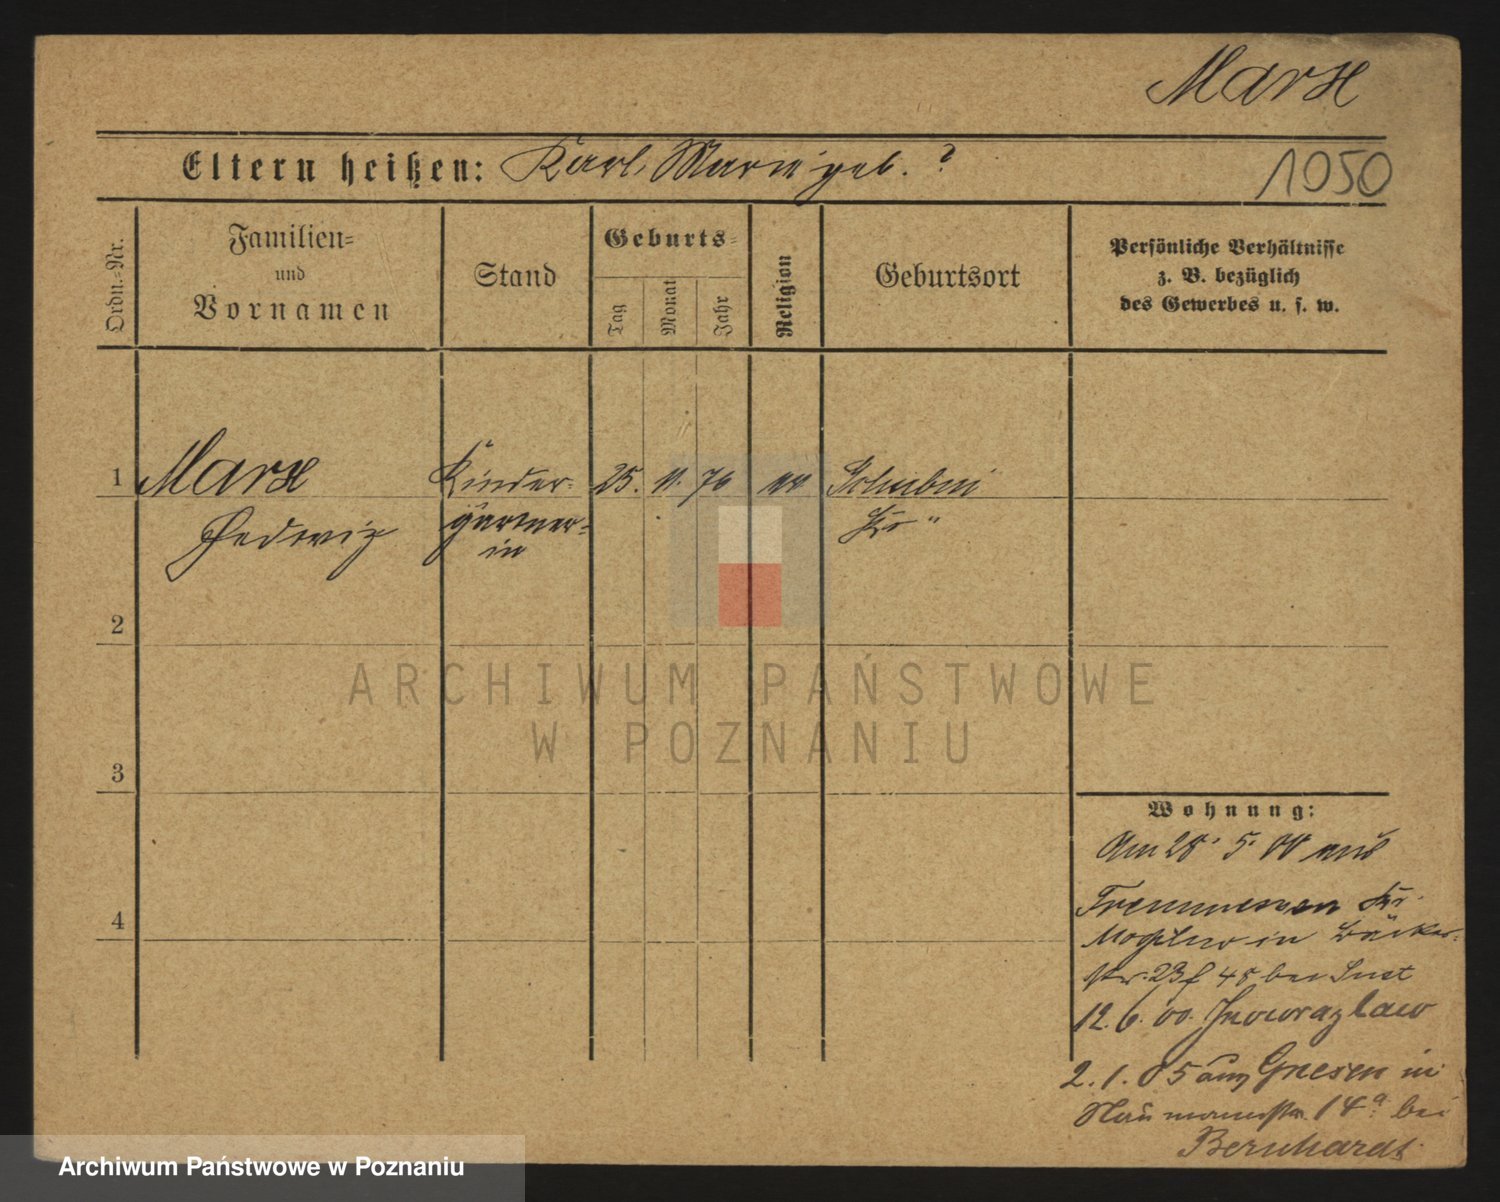 Marx
Eltern heißen: Karl, Marie geb. ?
1050
Ordn.-Nr.
Familien-
und
Vornamen
Stand
Geburts-
Tag
Monat
Jahr
Religion
Geburtsort
Persönliche Verhältnisse
z. B. bezüglich
des Gewerbes u. s. w.
1
Marx
Hedwig
Kinder-
gärtner-
in
25. 11. 76
Schubin
Kr "
2
ARCHIWUM PAŃSTWOWE
W POZNANIU
3
Wohnung:
Am 28. 5. 00 aus
Tremessen Kr.
Mogilno in Bäcker-
str. 23 bei
12. 6. 00. Inowrazlaw
4
2. 1. 05 aus Gnesen in
Naumannstr. 14a bei
Bernhardt
Archiwum Państwowe w Poznaniu